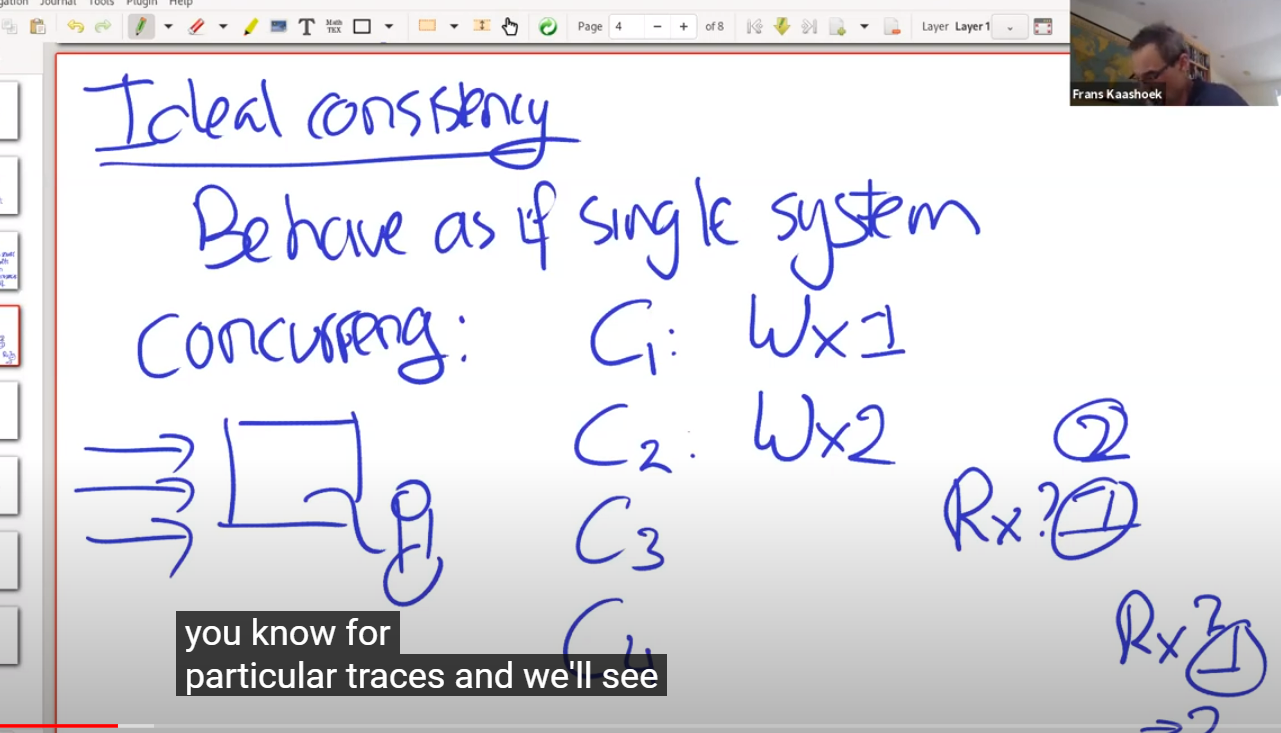 gation Journal Tools Plugin Help
Page 4 - + of 8 Layer Layer 1
Math TEX
Frans Kaashoek
Ideal consistency
Behave as if single system
Concurrency:
C1: Wx1
C2: Wx2 2
C3 Rx? 1
C4 Rx? 1
=> ?
you know for
particular traces and we'll see